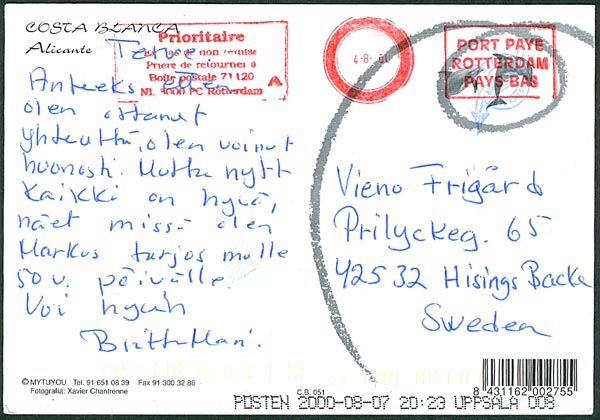 COSTA BLANCA
Alicante
Terve
Anteeks etten
olen ottanut
yhteuttä, olen voinut
huonosti. Mutta nytt
kaikki on hyvä,
näet missä olen
Markus tarjos mulle
50 v. päivälle.
Voi hyvin
Britt-Mari.
Prioritaire
de non remise
Priere de retourner à
Boite postale 71120
NL 3000 PC Rotterdam
A
4.8.
PORT PAYE
ROTTERDAM
PAYS-BAS
Vieno Frigård
Prilyckeg. 65
42532 Hisings Backa
Sweden
© MYTUYOU Tel. 91 651 08 39 Fax 91 300 32 86
Fotografía: Xavier Chantrenne
C.B. 051
8 431162 002755
POSTEN 2000-08-07 20:23 UPPSALA 008